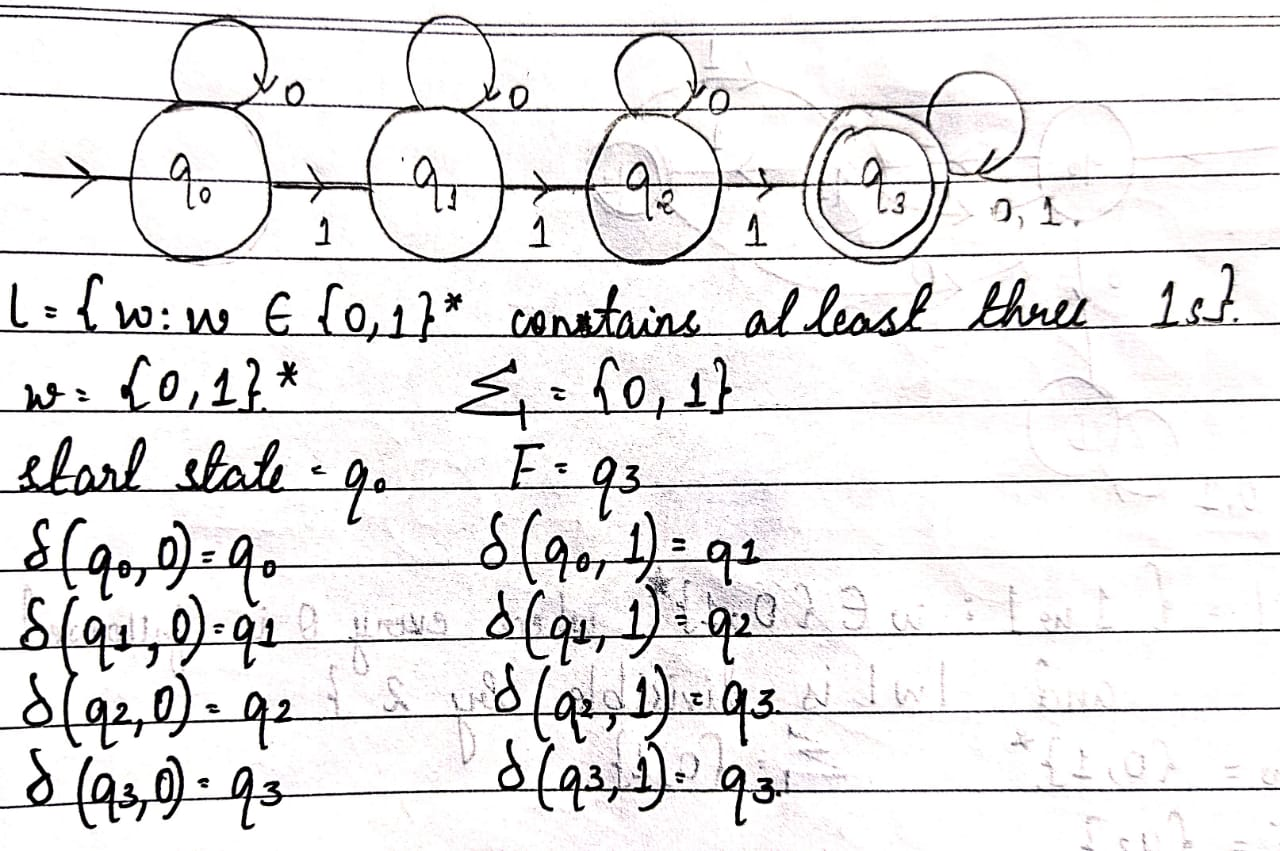 0 0 0
q₀ q₁ q₂ q₃
1 1 1 0, 1.
L = { w : w ∈ {0,1}* contains at least three 1s}.
w = {0,1}.* Σ = {0, 1}
start state = q₀ F = q₃
δ(q₀, 0) = q₀ δ(q₀, 1) = q1
δ(q₁, 0) = q1 δ(q₁, 1) = q2
δ(q2, 0) = q2 δ(q₂, 1) = q3.
δ(q3, 0) = q3 δ(q3, 1) = q3.